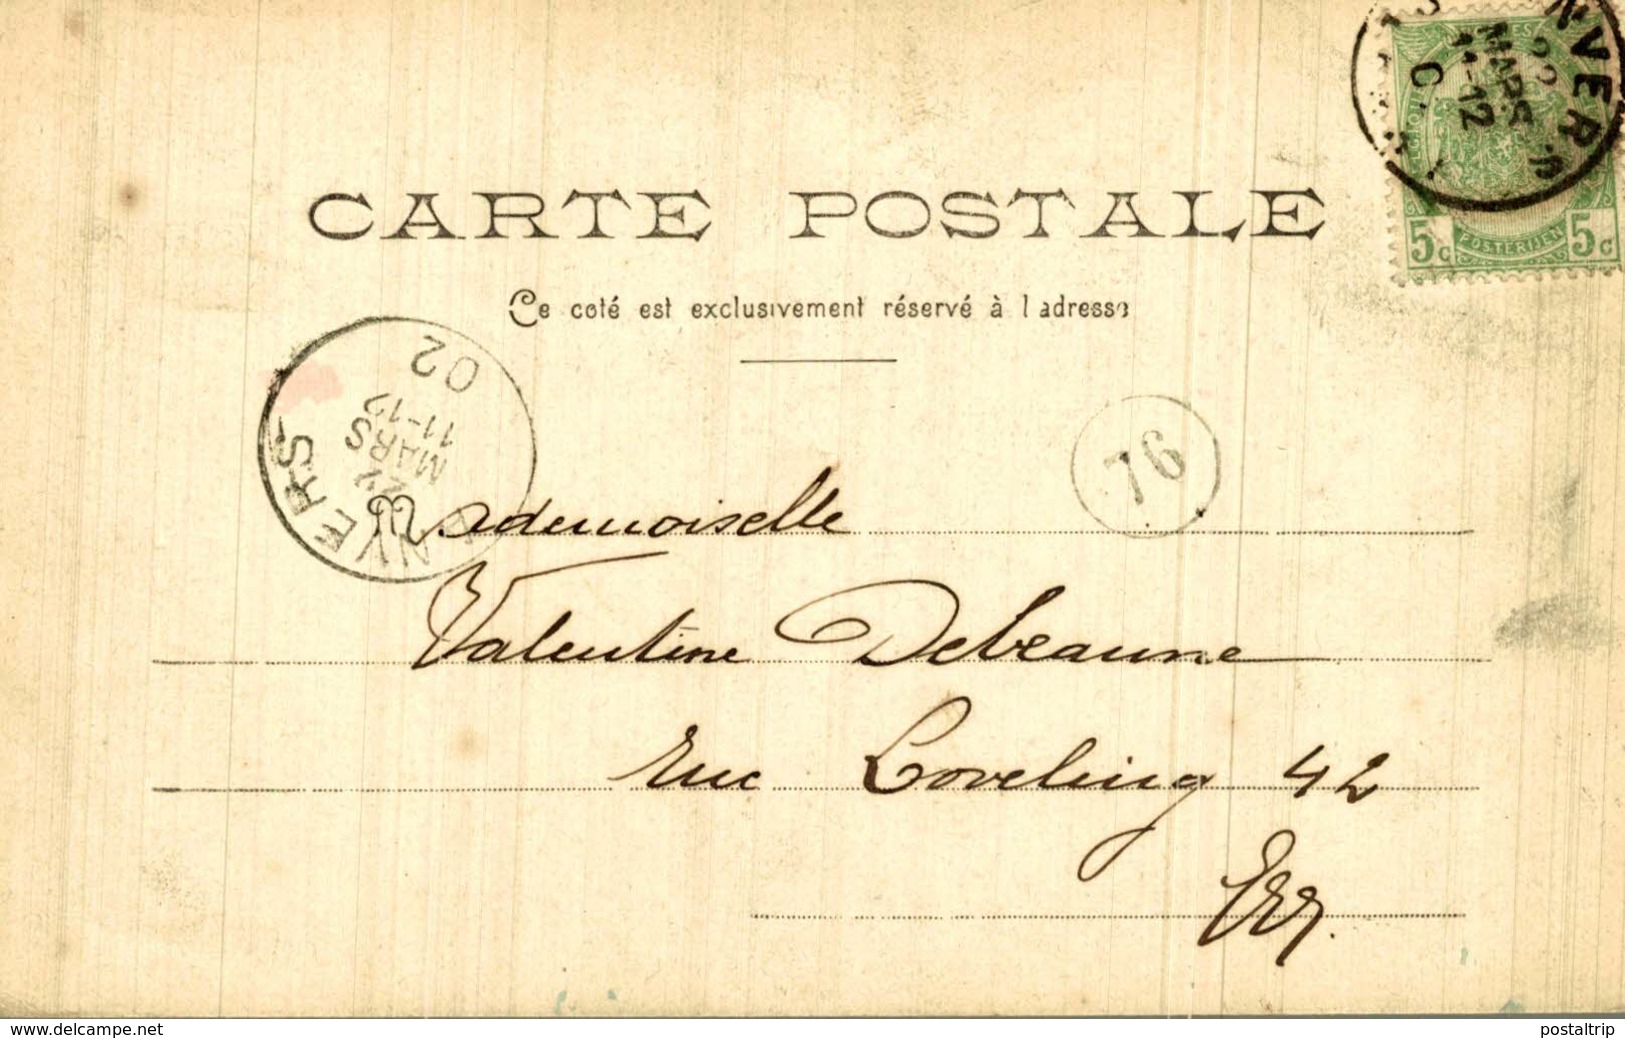 NVERS
22
MARS
11-12
C
5c POSTERIJEN 5c
CARTE POSTALE
Ce coté est exclusivement réservé à l'adresse
ANVERS
MARS
11-12
02
76
Mademoiselle
Valentine Debeaune
rue Loveling 42
www.delcampe.net
postaltrip